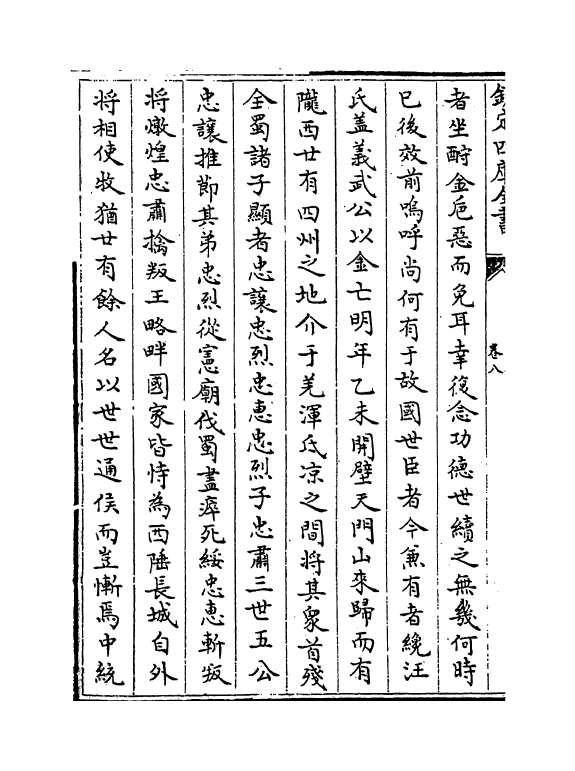 欽定四庫全書
卷八
者坐酎金巵惡而免耳幸復念功德世續之無幾何時
已後效前嗚呼尚何有于故國世臣者今兼有者纔汪
氏盖義武公以金亡明年乙未開壁天門山來歸而有
隴西廿有四州之地介于羌渾氐凉之間將其衆首殘
全蜀諸子顯者忠讓忠烈忠惠忠烈子忠肅三世五公
忠讓推節其弟忠烈從憲廟伐蜀盡瘁死綏忠惠斬叛
將燉煌忠肅擒叛王略畔國家皆恃為西陲長城自外
將相使牧猶廿有餘人名以世世通侯而豈慚焉中統